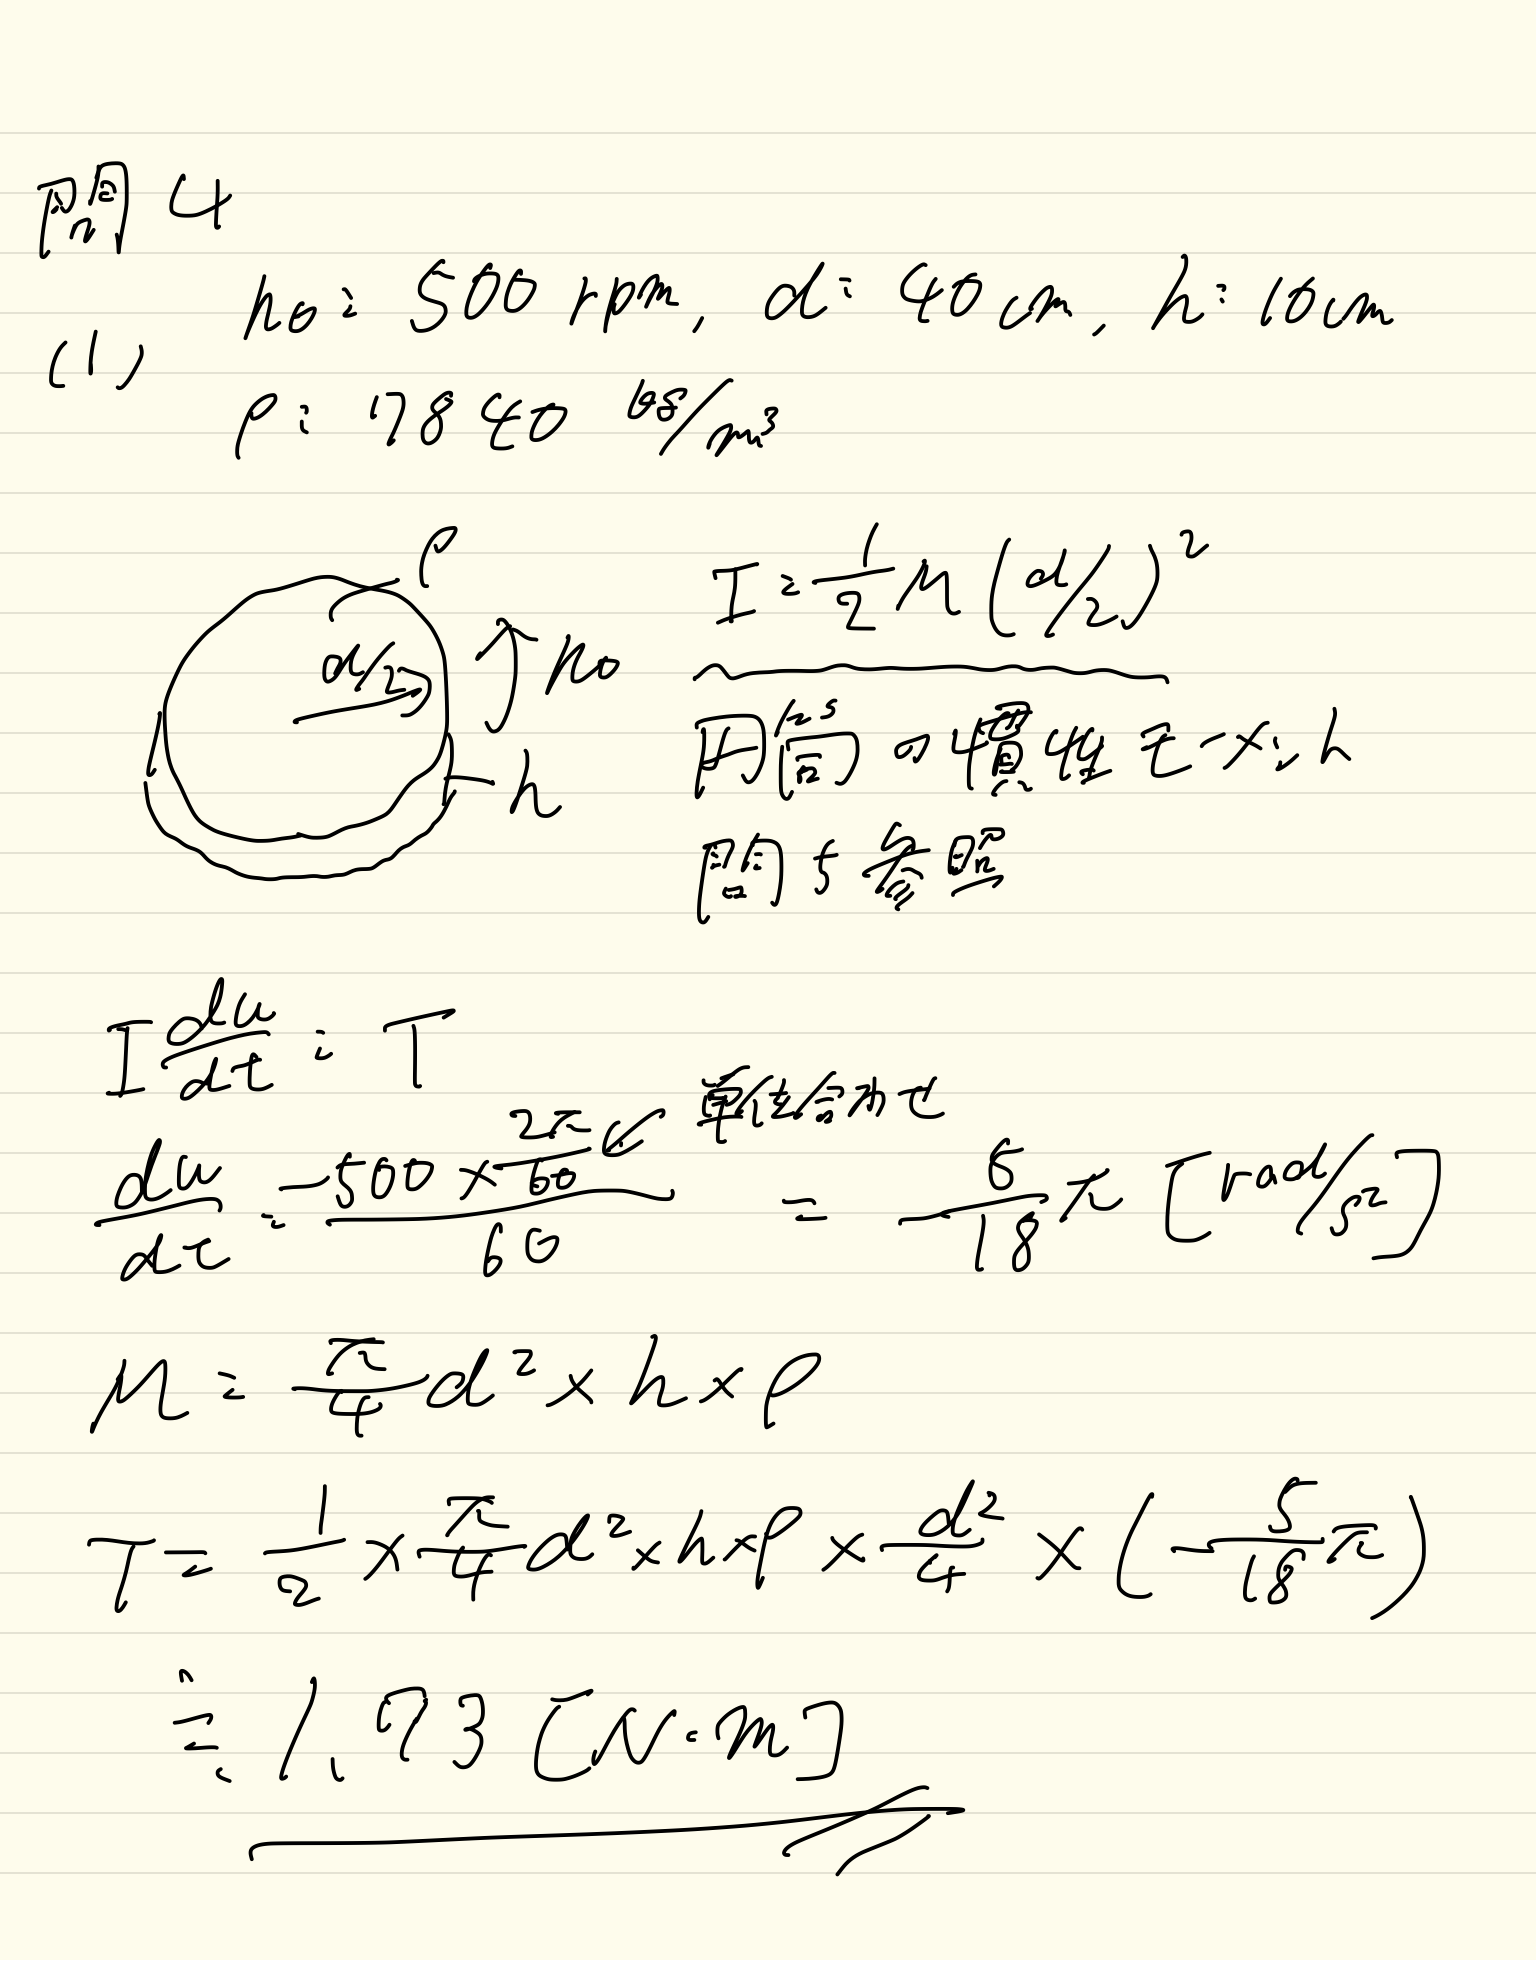 問4
(1) n₀ = 500 rpm, d = 40 cm, h = 10 cm
ρ = 7840 kg/m³
ρ
d/2
n₀
h
I = 1/2 M (d/2)²
円筒の慣性モーメント
問5参照
I du/dt = T
単位合わせ
du/dt = (-500 × 2π/60)/60 = -5/18 π [rad/s²]
M = π/4 d² × h × ρ
T = 1/2 × π/4 d² × h × ρ × d²/4 × (-5/18 π)
≒ 1.73 [N·m]